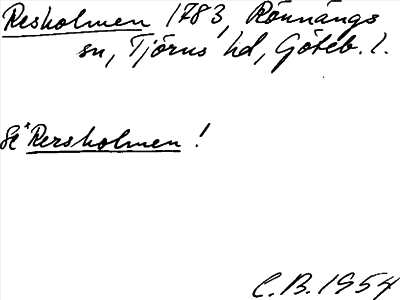 Resholmen 1783, Rönnängs
sn, Tjörns hd, Göteb. l.
Se *Rersholmen!
C.B. 1954